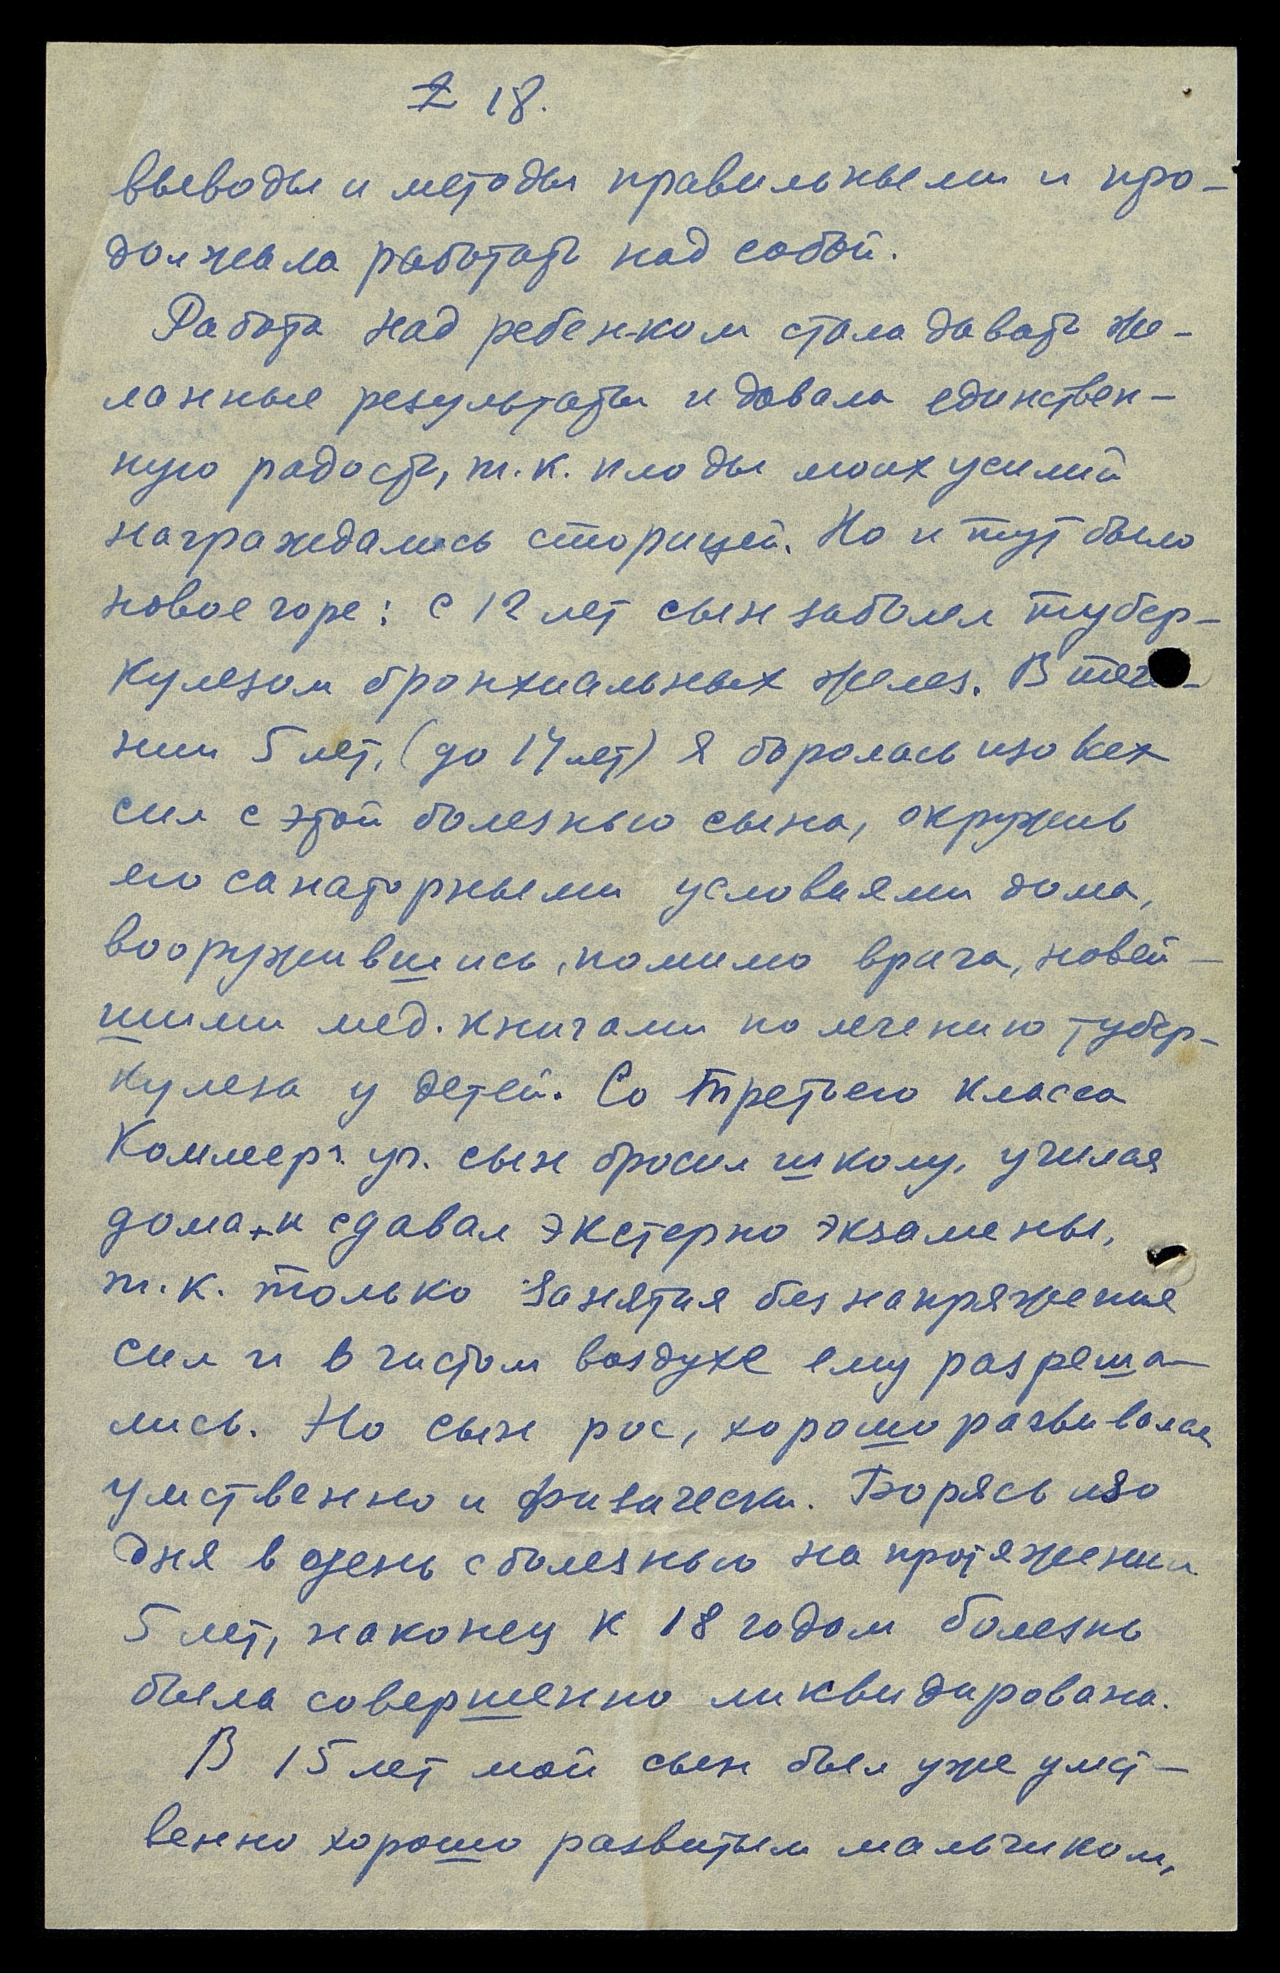 18.
выводы и методы правильными и про-
должала работать над собой.
Работа над ребенком стала давать же-
ланные результаты и давала единствен-
ную радость, т.к. плоды моих усилий
награждались сторицей. Но и тут было
новое горе: с 12 лет сын заболел тубер-
кулезом бронхиальных желез. В тече-
нии 5 лет, (до 17 лет) я боролась изо всех
сил с этой болезнью сына, окружив
его санаторными условиями дома,
вооружившись, помимо врача, новей-
шими мед. книгами по лечению тубер-
кулеза у детей. Со третьего класса
Коммерч. уч. сын бросил школу, учился
дома и сдавал экстерно экзамены,
т.к. только занятия без напряжения
сил и в чистом воздухе ему разреша-
лись. Но сын рос, хорошо развивался
умственно и физически. Борясь изо
дня в день с болезнью на протяжении
5 лет, наконец к 18 годам болезнь
была совершенно ликвидирована.
В 15 лет мой сын был уже умст-
венно хорошо развитым мальчиком,